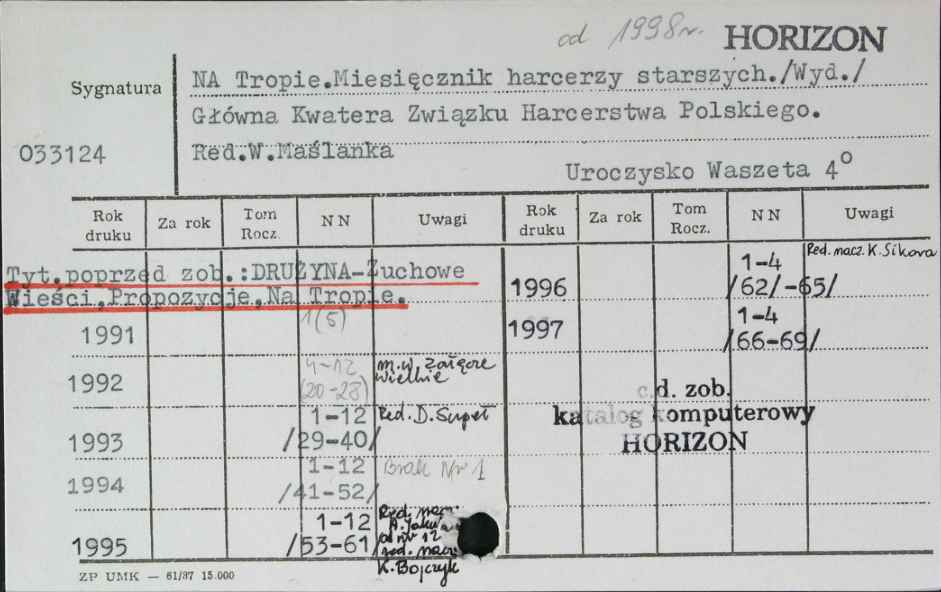 od 1998r. HORIZON
Sygnatura
NA Tropie.Miesięcznik harcerzy starszych./Wyd./
Główna Kwatera Związku Harcerstwa Polskiego.
033124
Red.W.Maślanka
Uroczysko Waszeta 4°
Rok druku Za rok Tom Rocz. N N Uwagi Rok druku Za rok Tom Rocz. N N Uwagi
Tyt.poprzed zob.:DRUŻYNA-Zuchowe
Wieści,Propozycje,Na Tropie.
1996 1-4 /62/-65/ Red. nacz. K. Sikora
1991 1(5)
1997 1-4 /66-69/
1992 4-12 (20-28) m.w. Załącze Wielkie
1993 1-12 /29-40/ Red. D. Supeł
c.d. zob.
katalog komputerowy
HORIZON
1994 1-12 /41-52/ Brak Nr 1
1995 1-12 /53-61/ Red. nacz.
od nr 12
red. nacz.
K. Bojczyk
ZP UMK — 61/87 15.000